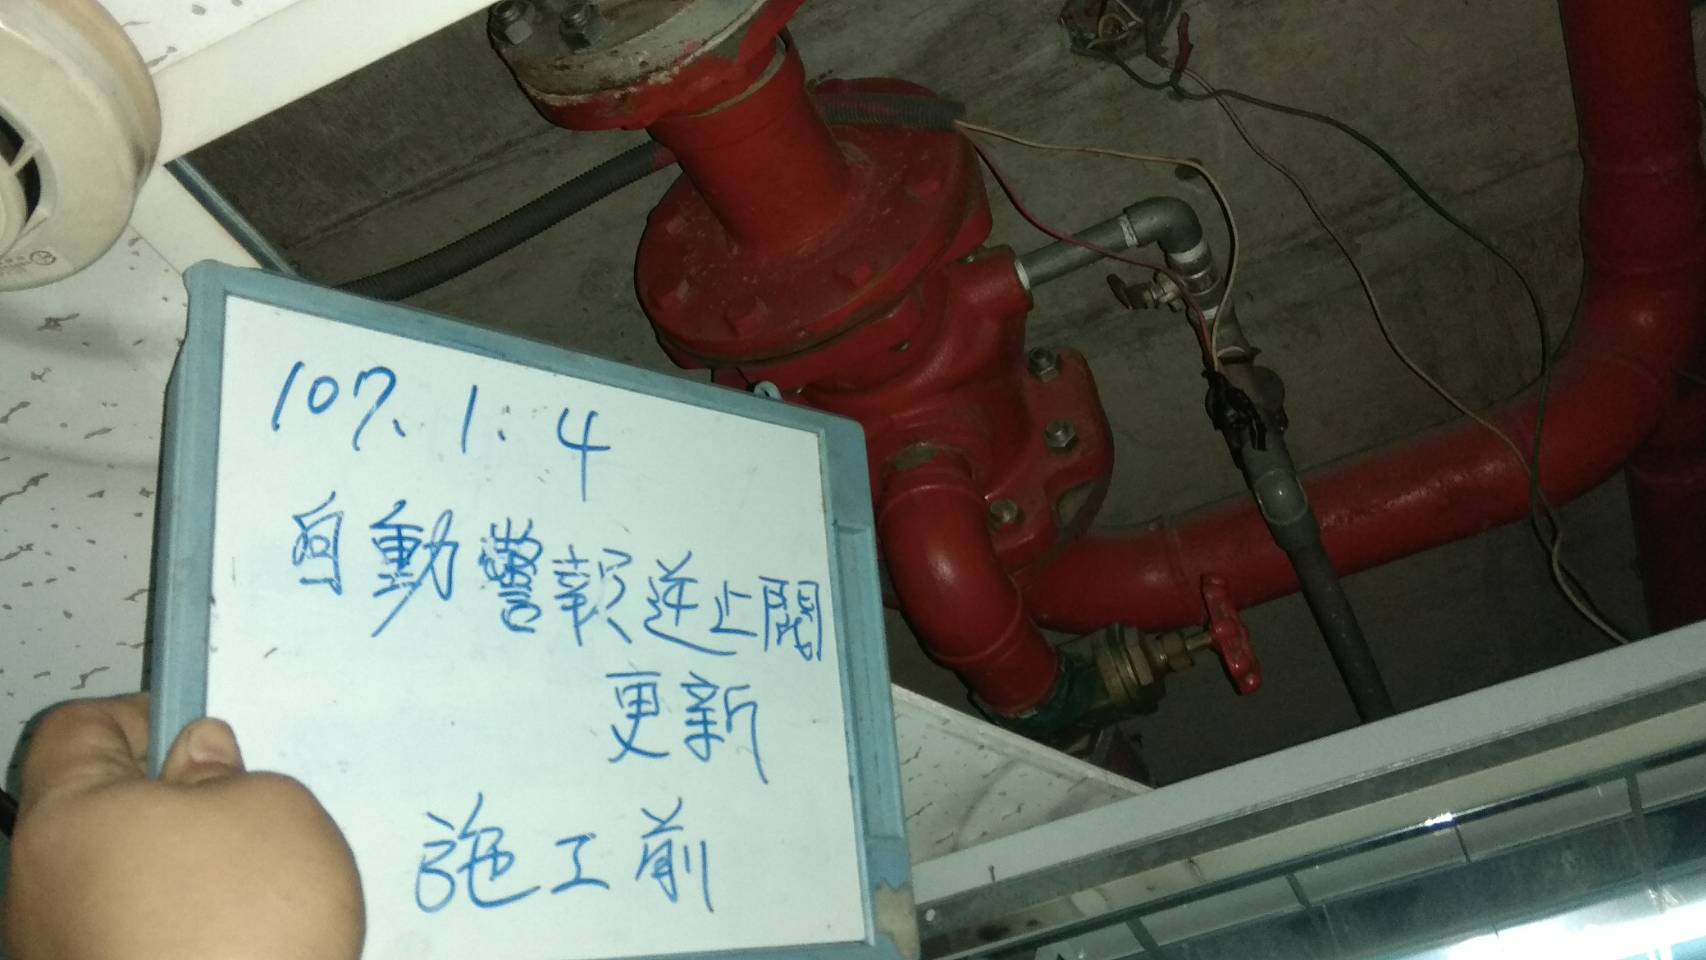 107、1、4
自動警報逆止閥
更新
施工前